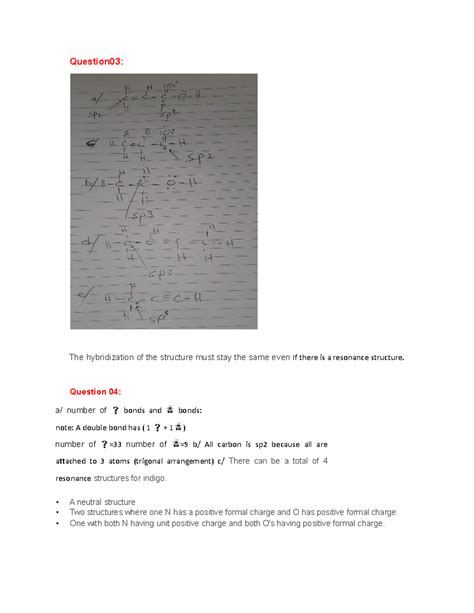 Question03:
a/ H H :O:
C = C - C - O - H
sp2 H sp2
c/ H H :O:
H C - C - C - H
H H sp2
b/ H - C - C - O - H
sp3
d/ H - C - C = C - C - H
H H
sp3
e/ H - C - C ≡ C - H
H sp3
The hybridization of the structure must stay the same even if there is a resonance structure.
Question 04:
a/ number of ? bonds and bonds:
note: A double bond has ( 1 ? + 1 )
number of ?=33 number of =9 b/ All carbon is sp2 because all are
attached to 3 atoms (trigonal arrangement) c/ There can be a total of 4
resonance structures for indigo.
• A neutral structure
• Two structures where one N has a positive formal charge and O has positive formal charge.
• One with both N having unit positive charge and both O's having positive formal charge.